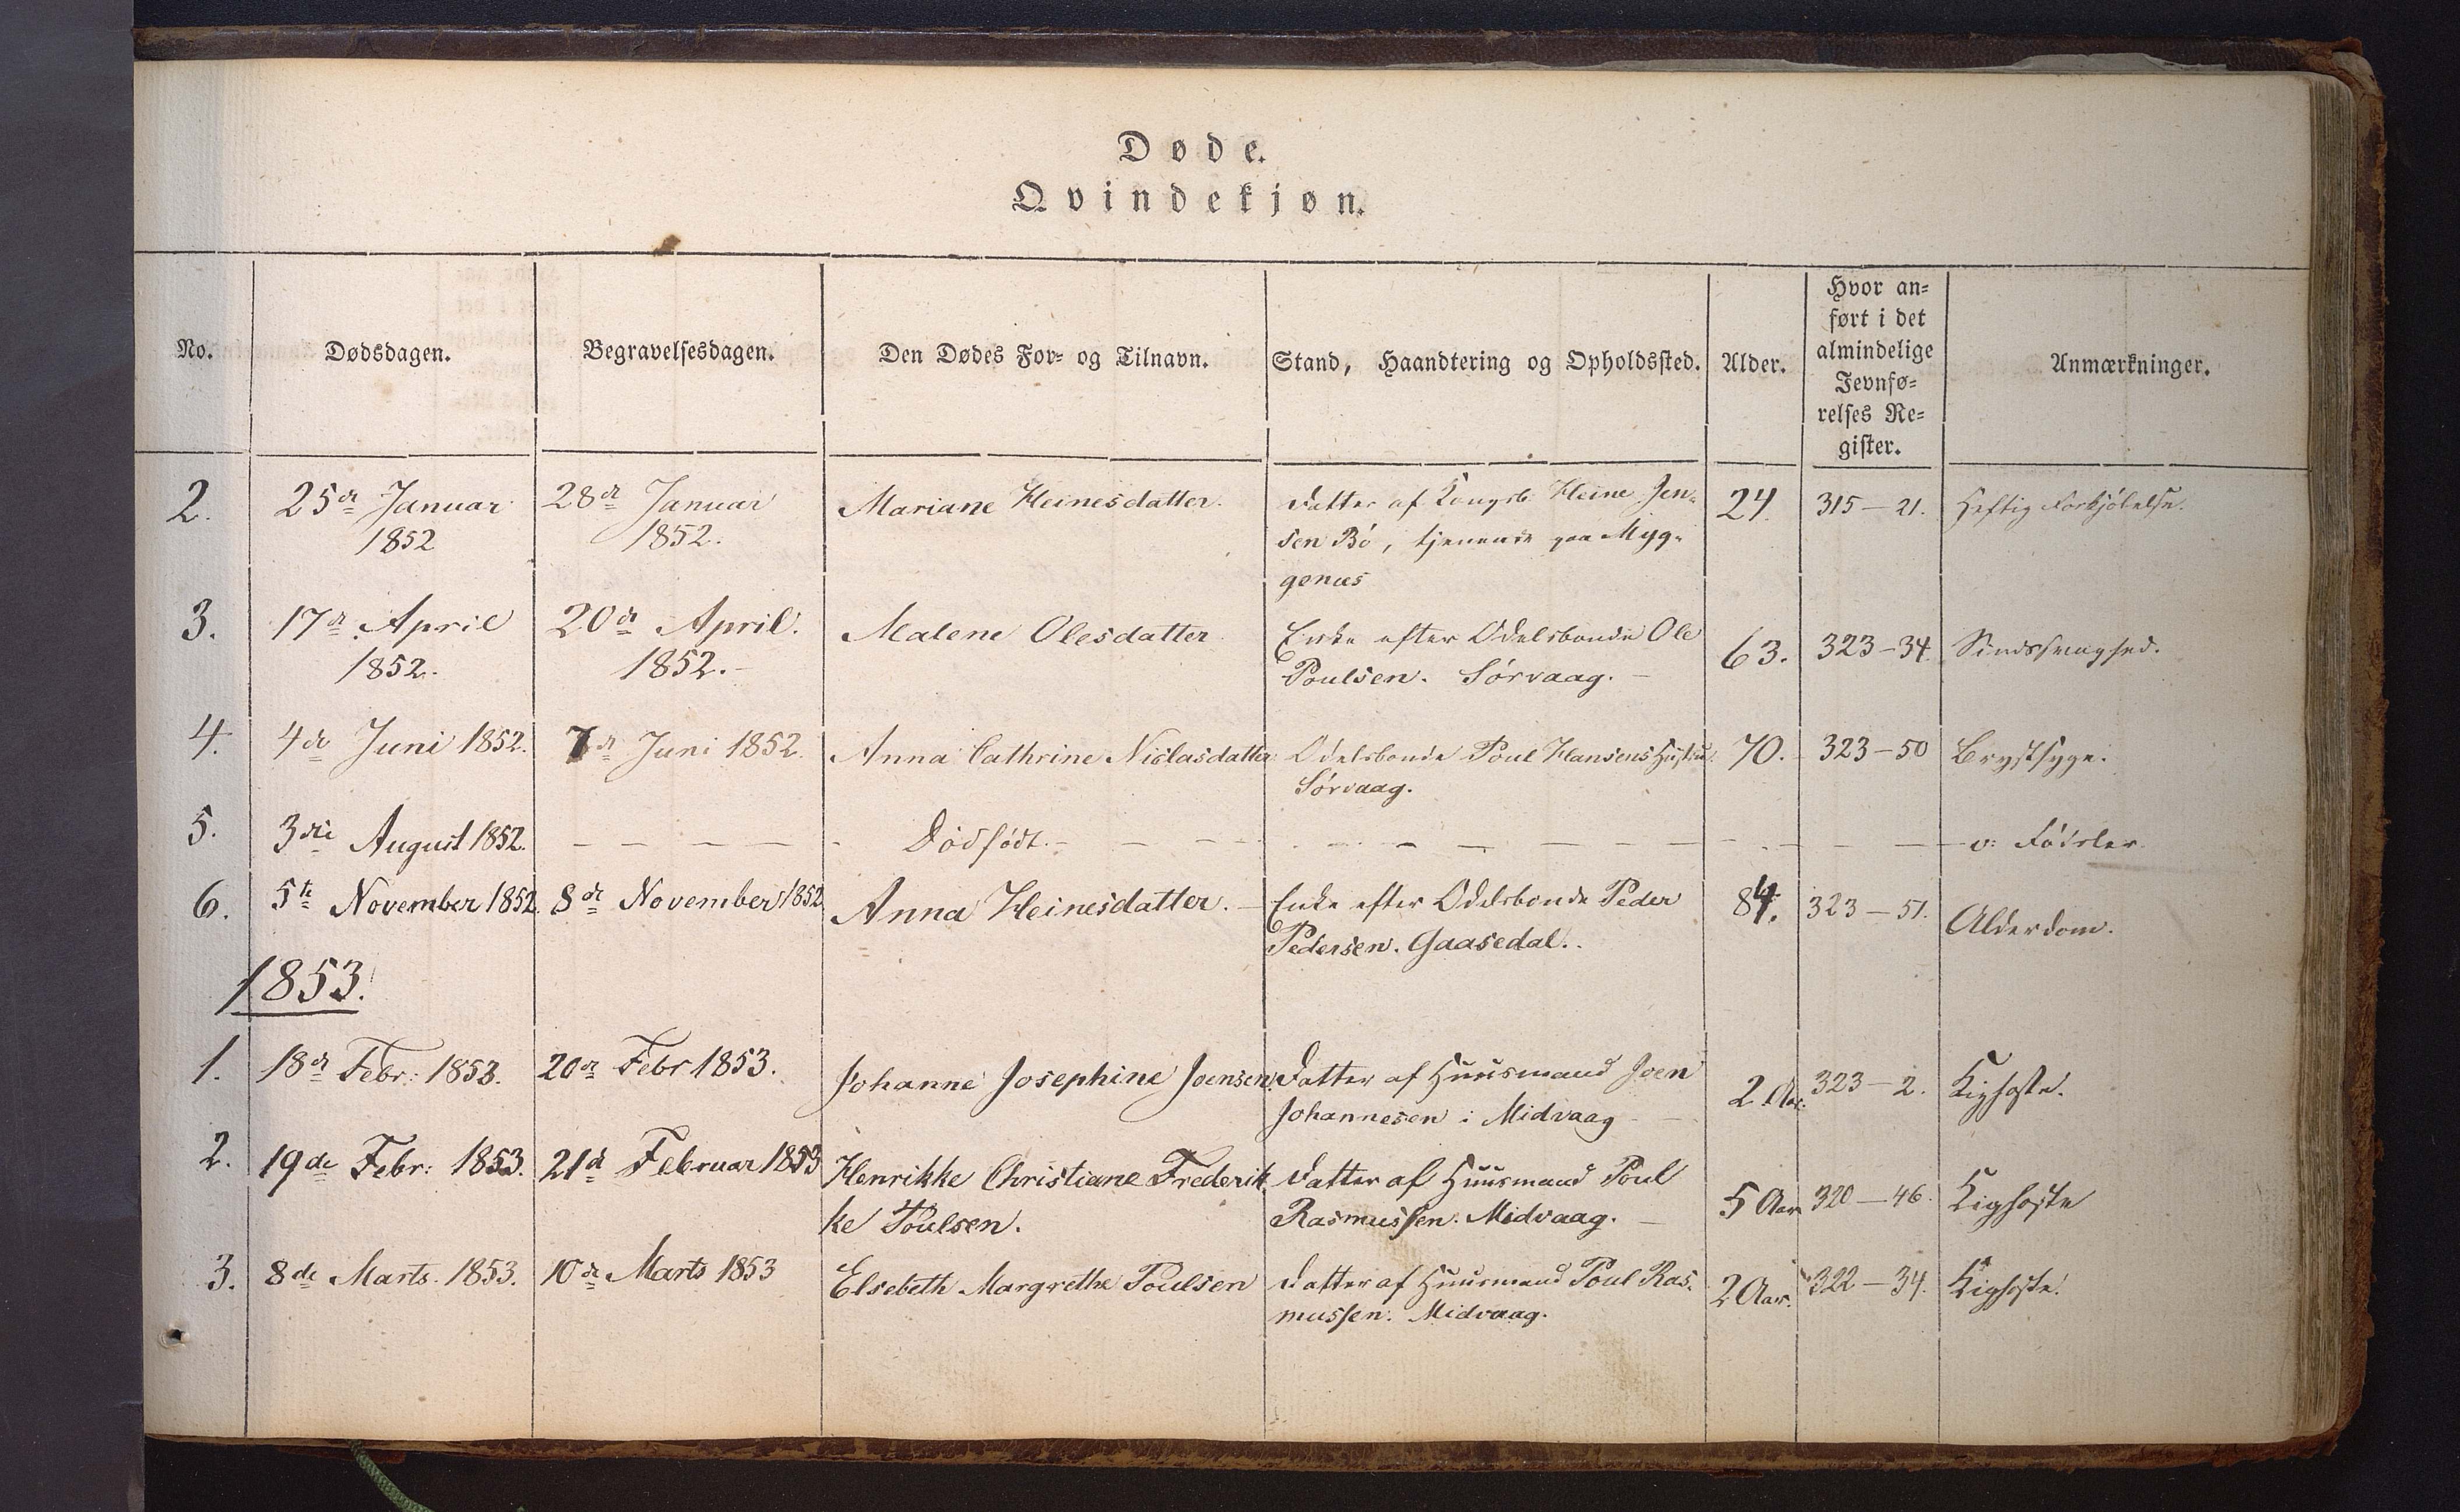 Døde.
Qvindekjøn.
No. Dødsdagen. Begravelsesdagen. Den Dødes For- og Tilnavn. Stand, Haandtering og Opholdssted. Alder. Hvor an-
ført i det
almindelige
Jevnfø-
relses Re-
gister. Anmærkninger.
2. 25de Januar 28de Januar Mariane Heinesdatter. Datter af Kongsb. Heine Jen- 24. 315 – 21. Heftig Forkjølelse.
1852 1852. sen Bö, tjenende paa Myg-
genæs
3. 17de April 20de April. Malene Olesdatter. Enke efter Odelsbonde Ole 63. 323 – 34. Sindssvaghed.
1852. 1852. – Poulsen. Sørvaag. –
4. 4de Juni 1852. 7de Juni 1852. Anna Cathrine Niclasdatter Odelsbonde Poul Hansens Hustru. 70. 323 – 50 Brystsyge.
Sørvaag.
5. 3die August 1852. – – – – – Dødfødt. – – – – – – – – – – v: Fødsler
6. 5te November 1852. 8de November 1852 Anna Heinesdatter. – Enke efter Odelsbonde Peder 84. 323 – 51. Alderdom.
Pedersen. Gaasedal. .
1853.
1. 18de Febr: 1853. 20de Febr 1853. Johanne Josephine Joensen. Datter af Huusmand Joen 2 Aar. 323 – 2. Kighoste.
Johannesen i Midvaag –
2. 19de Febr: 1853. 21d Februar 1853 Henrikke Christiane Frederik- Datter af Huusmand Poul 5 Aar 320 – 46. Kighoste
ke Poulsen. Rasmussen. Midvaag. –
3. 8de Marts. 1853. 10de Marts 1853 Elsebeth Margrethe Poulsen Datter af Huusmand Poul Ras- 2 Aar. 322 – 34. Kighoste.
mussen. Midvaag.